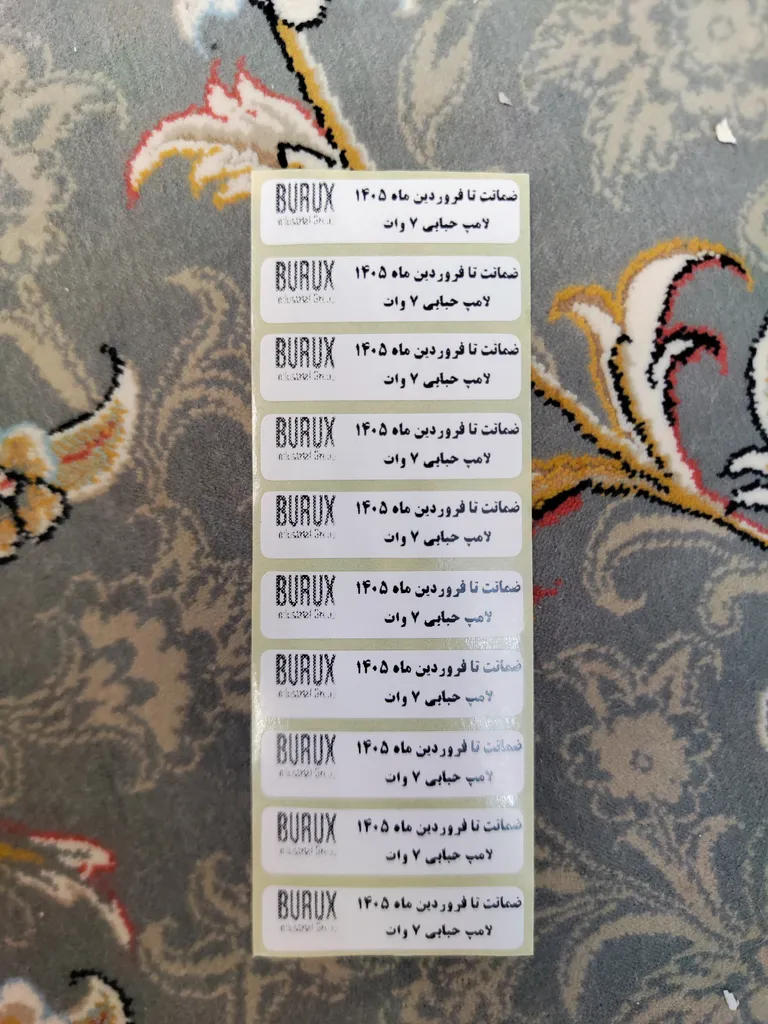 BURUX
Industrial Group
ضمانت تا فروردین ماه ۱۴۰۵
لامپ حبابی ۷ وات
BURUX
Industrial Group
ضمانت تا فروردین ماه ۱۴۰۵
لامپ حبابی ۷ وات
BURUX
Industrial Group
ضمانت تا فروردین ماه ۱۴۰۵
لامپ حبابی ۷ وات
BURUX
Industrial Group
ضمانت تا فروردین ماه ۱۴۰۵
لامپ حبابی ۷ وات
BURUX
Industrial Group
ضمانت تا فروردین ماه ۱۴۰۵
لامپ حبابی ۷ وات
BURUX
Industrial Group
ضمانت تا فروردین ماه ۱۴۰۵
لامپ حبابی ۷ وات
BURUX
Industrial Group
ضمانت تا فروردین ماه ۱۴۰۵
لامپ حبابی ۷ وات
BURUX
Industrial Group
ضمانت تا فروردین ماه ۱۴۰۵
لامپ حبابی ۷ وات
BURUX
Industrial Group
ضمانت تا فروردین ماه ۱۴۰۵
لامپ حبابی ۷ وات
BURUX
Industrial Group
ضمانت تا فروردین ماه ۱۴۰۵
لامپ حبابی ۷ وات